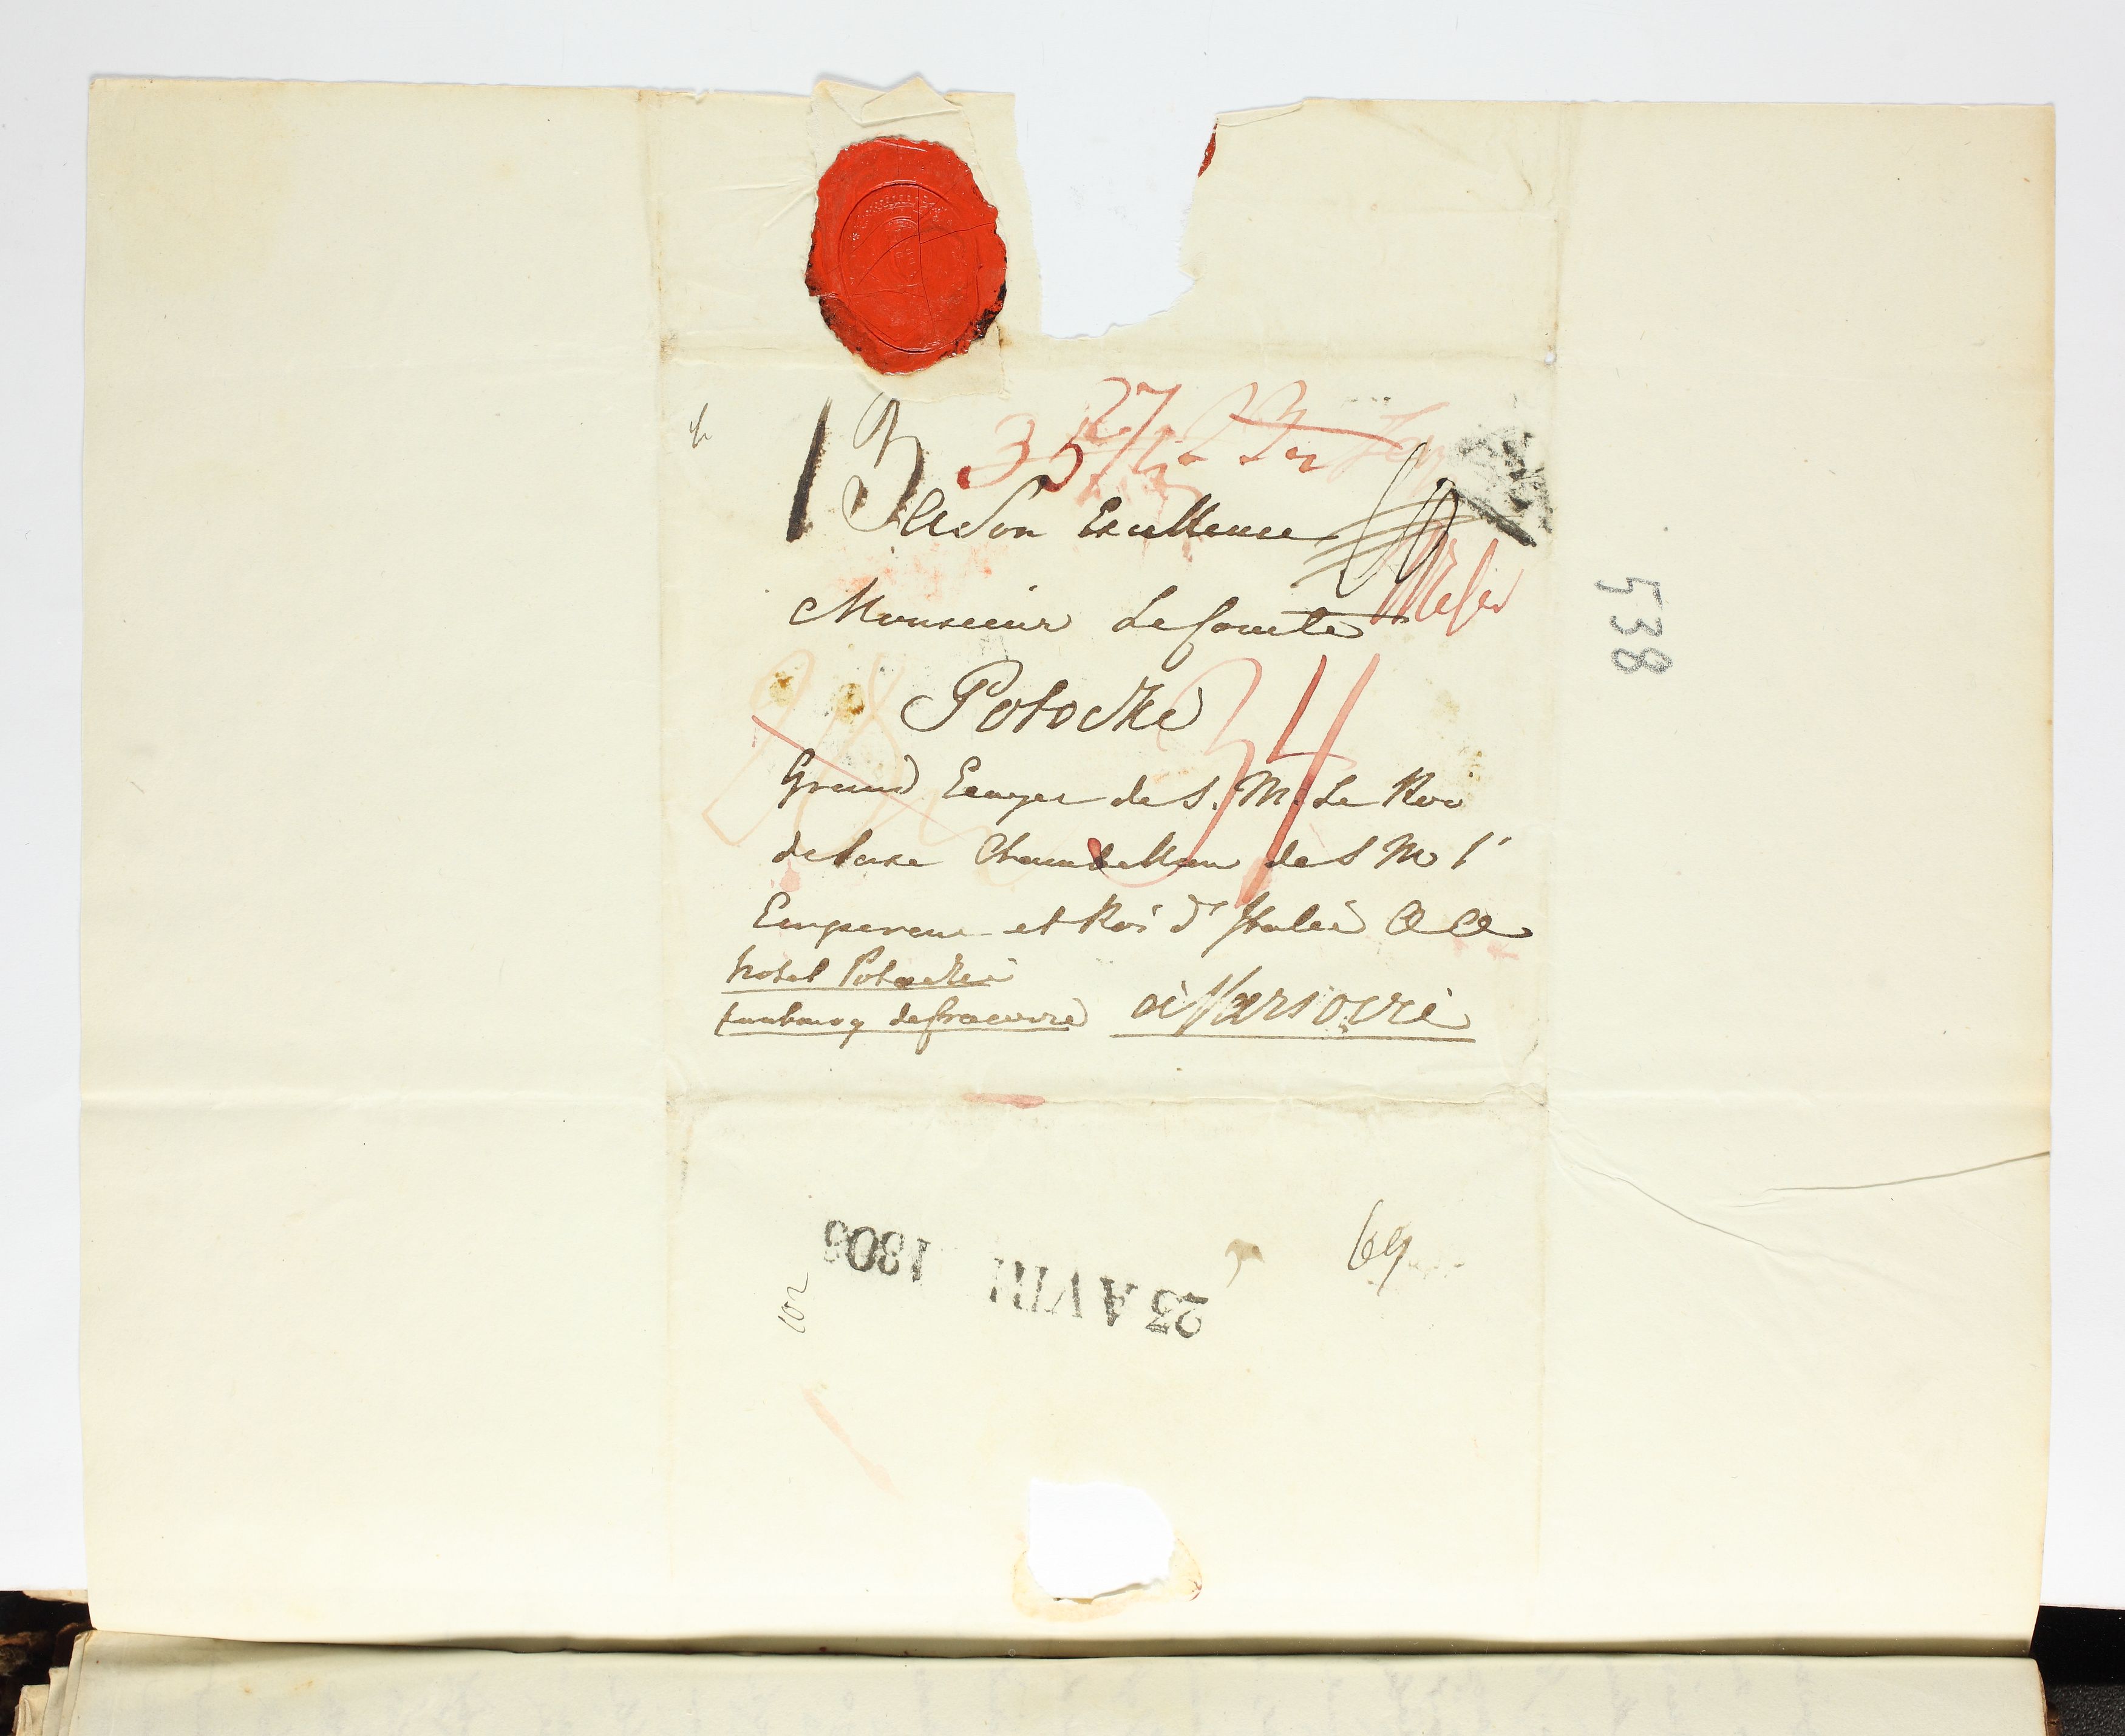 13 35
27
A Son Excellence
Monsieur Le Comte
Potocki
34
Grand Ecuyer de S. M. Le Roi
de Saxe Chambellan de S M l'
Empereur et Roi d'Italie &c &c
hotel Potocki
faubourg de Cracovie à Varsovie
538
23 AVRI 1808
69
102